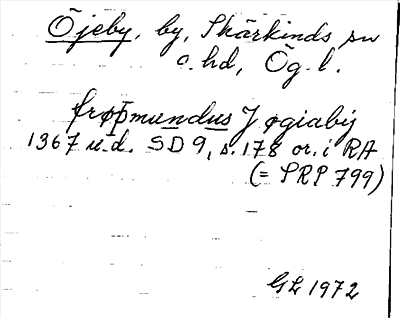 Öjeby, by, Skärkinds sn
o. hd, Ög. l.
frøþmundus J øgiabij
1367 u.d. SD 9, s. 178 or. i RA
(= SRP 799)
GL 1972